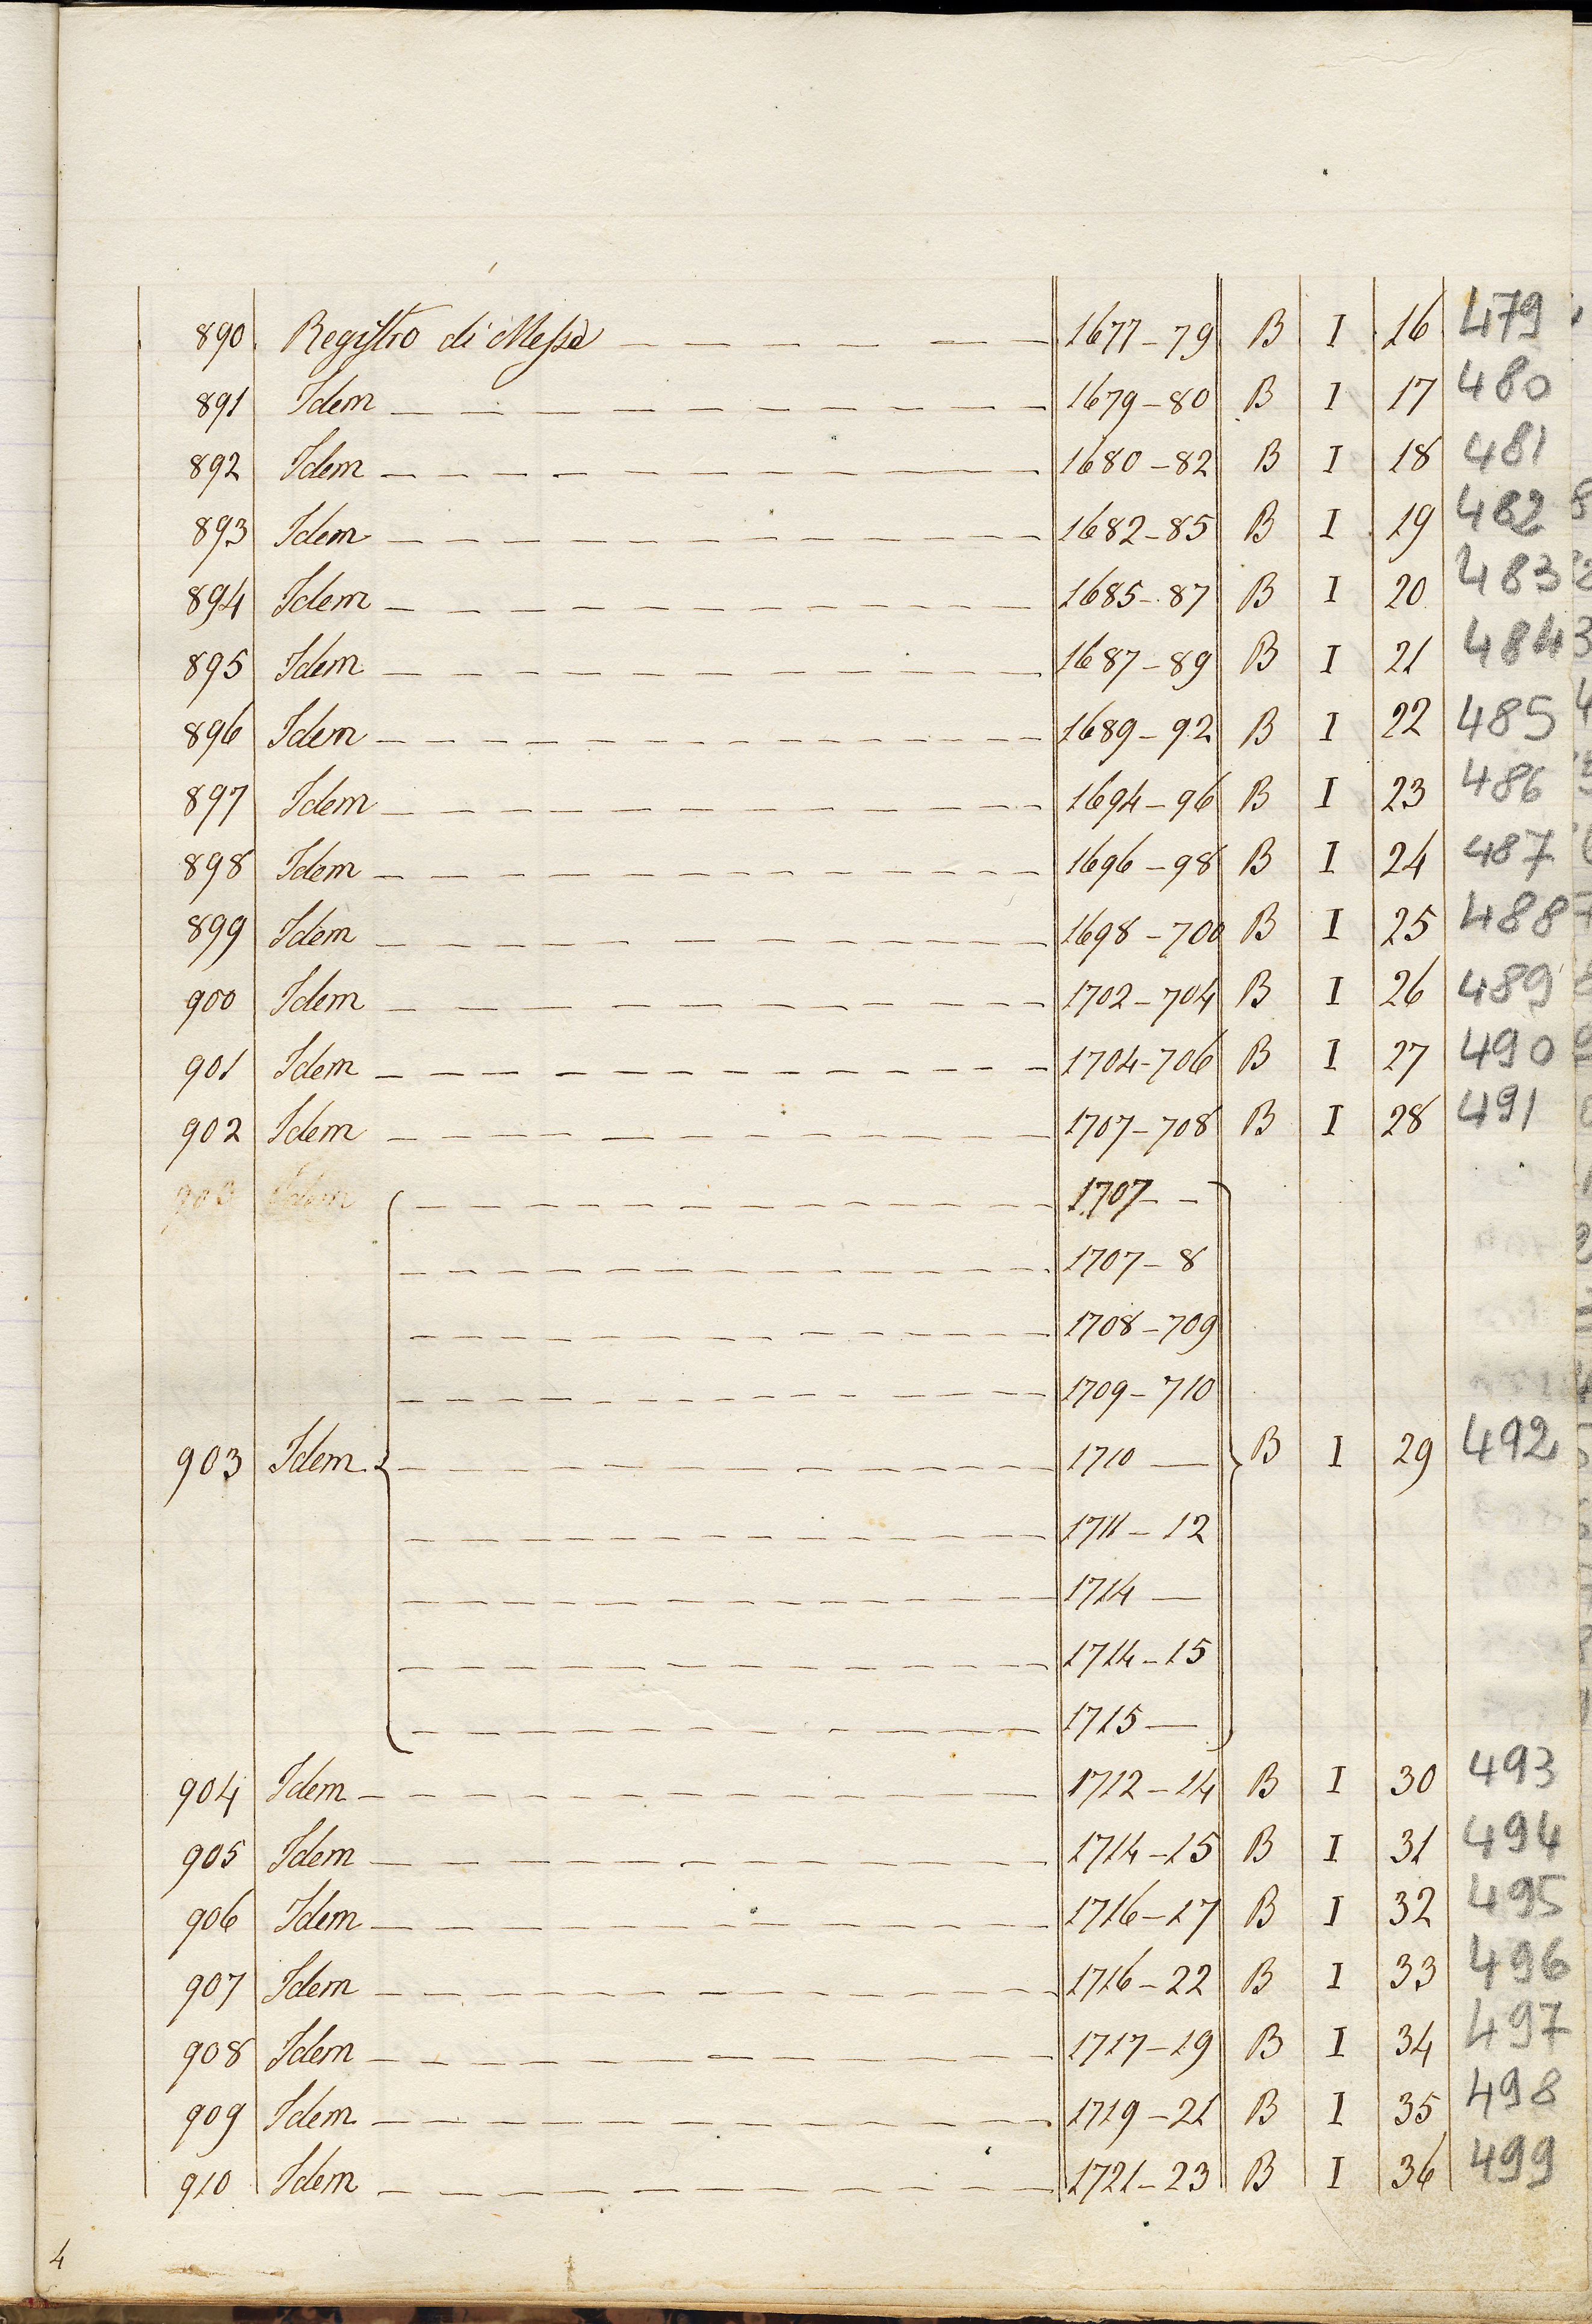 890 Registro di Messe 1677-79 B I 16 479
891 Idem 1679-80 B I 17 480
892 Idem 1680-82 B I 18 481
893 Idem 1682-85 B I 19 482
894 Idem 1685-87 B I 20 483
895 Idem 1687-89 B I 21 484
896 Idem 1689-92 B I 22 485
897 Idem 1694-96 B I 23 486
898 Idem 1696-98 B I 24 487
899 Idem 1698-700 B I 25 488
900 Idem 1702-704 B I 26 489
901 Idem 1704-706 B I 27 490
902 Idem 1707-708 B I 28 491
903 Idem 1707 - -
1707-8
1708-709
1709-710
903 Idem 1710 — B I 29 492
1711-12
1714 —
1714-15
1715 —
904 Idem 1712-14 B I 30 493
905 Idem 1714-15 B I 31 494
906 Idem 1716-17 B I 32 495
907 Idem 1716-22 B I 33 496
908 Idem 1717-19 B I 34 497
909 Idem 1719-21 B I 35 498
910 Idem 1721-23 B I 36 499
4